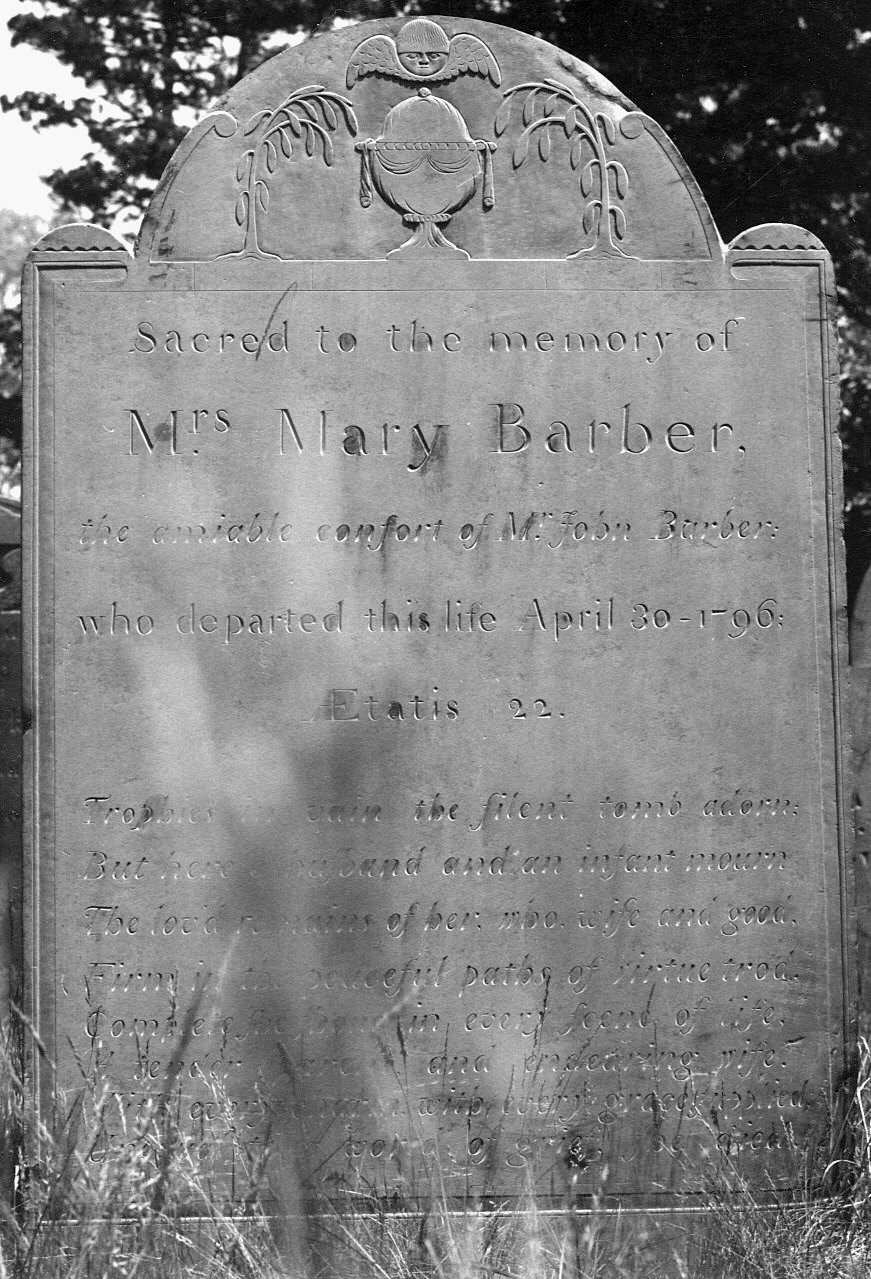 Sacred to the memory of
Mrs Mary Barber,
the amiable conſort of Mr. John Barber:
who departed this life April 30-1796:
Ætatis 22.
Trophies in vain the ſilent tomb adorn;
But here a huſband and an infant mourn
The lov'd remains of her, who, wiſe and good,
Firm in the peaceful paths of virtue trod.
Complete ſhe in every ſcene of life,
A tender and endearing wife.
every with every grace
world of grief, ſhe